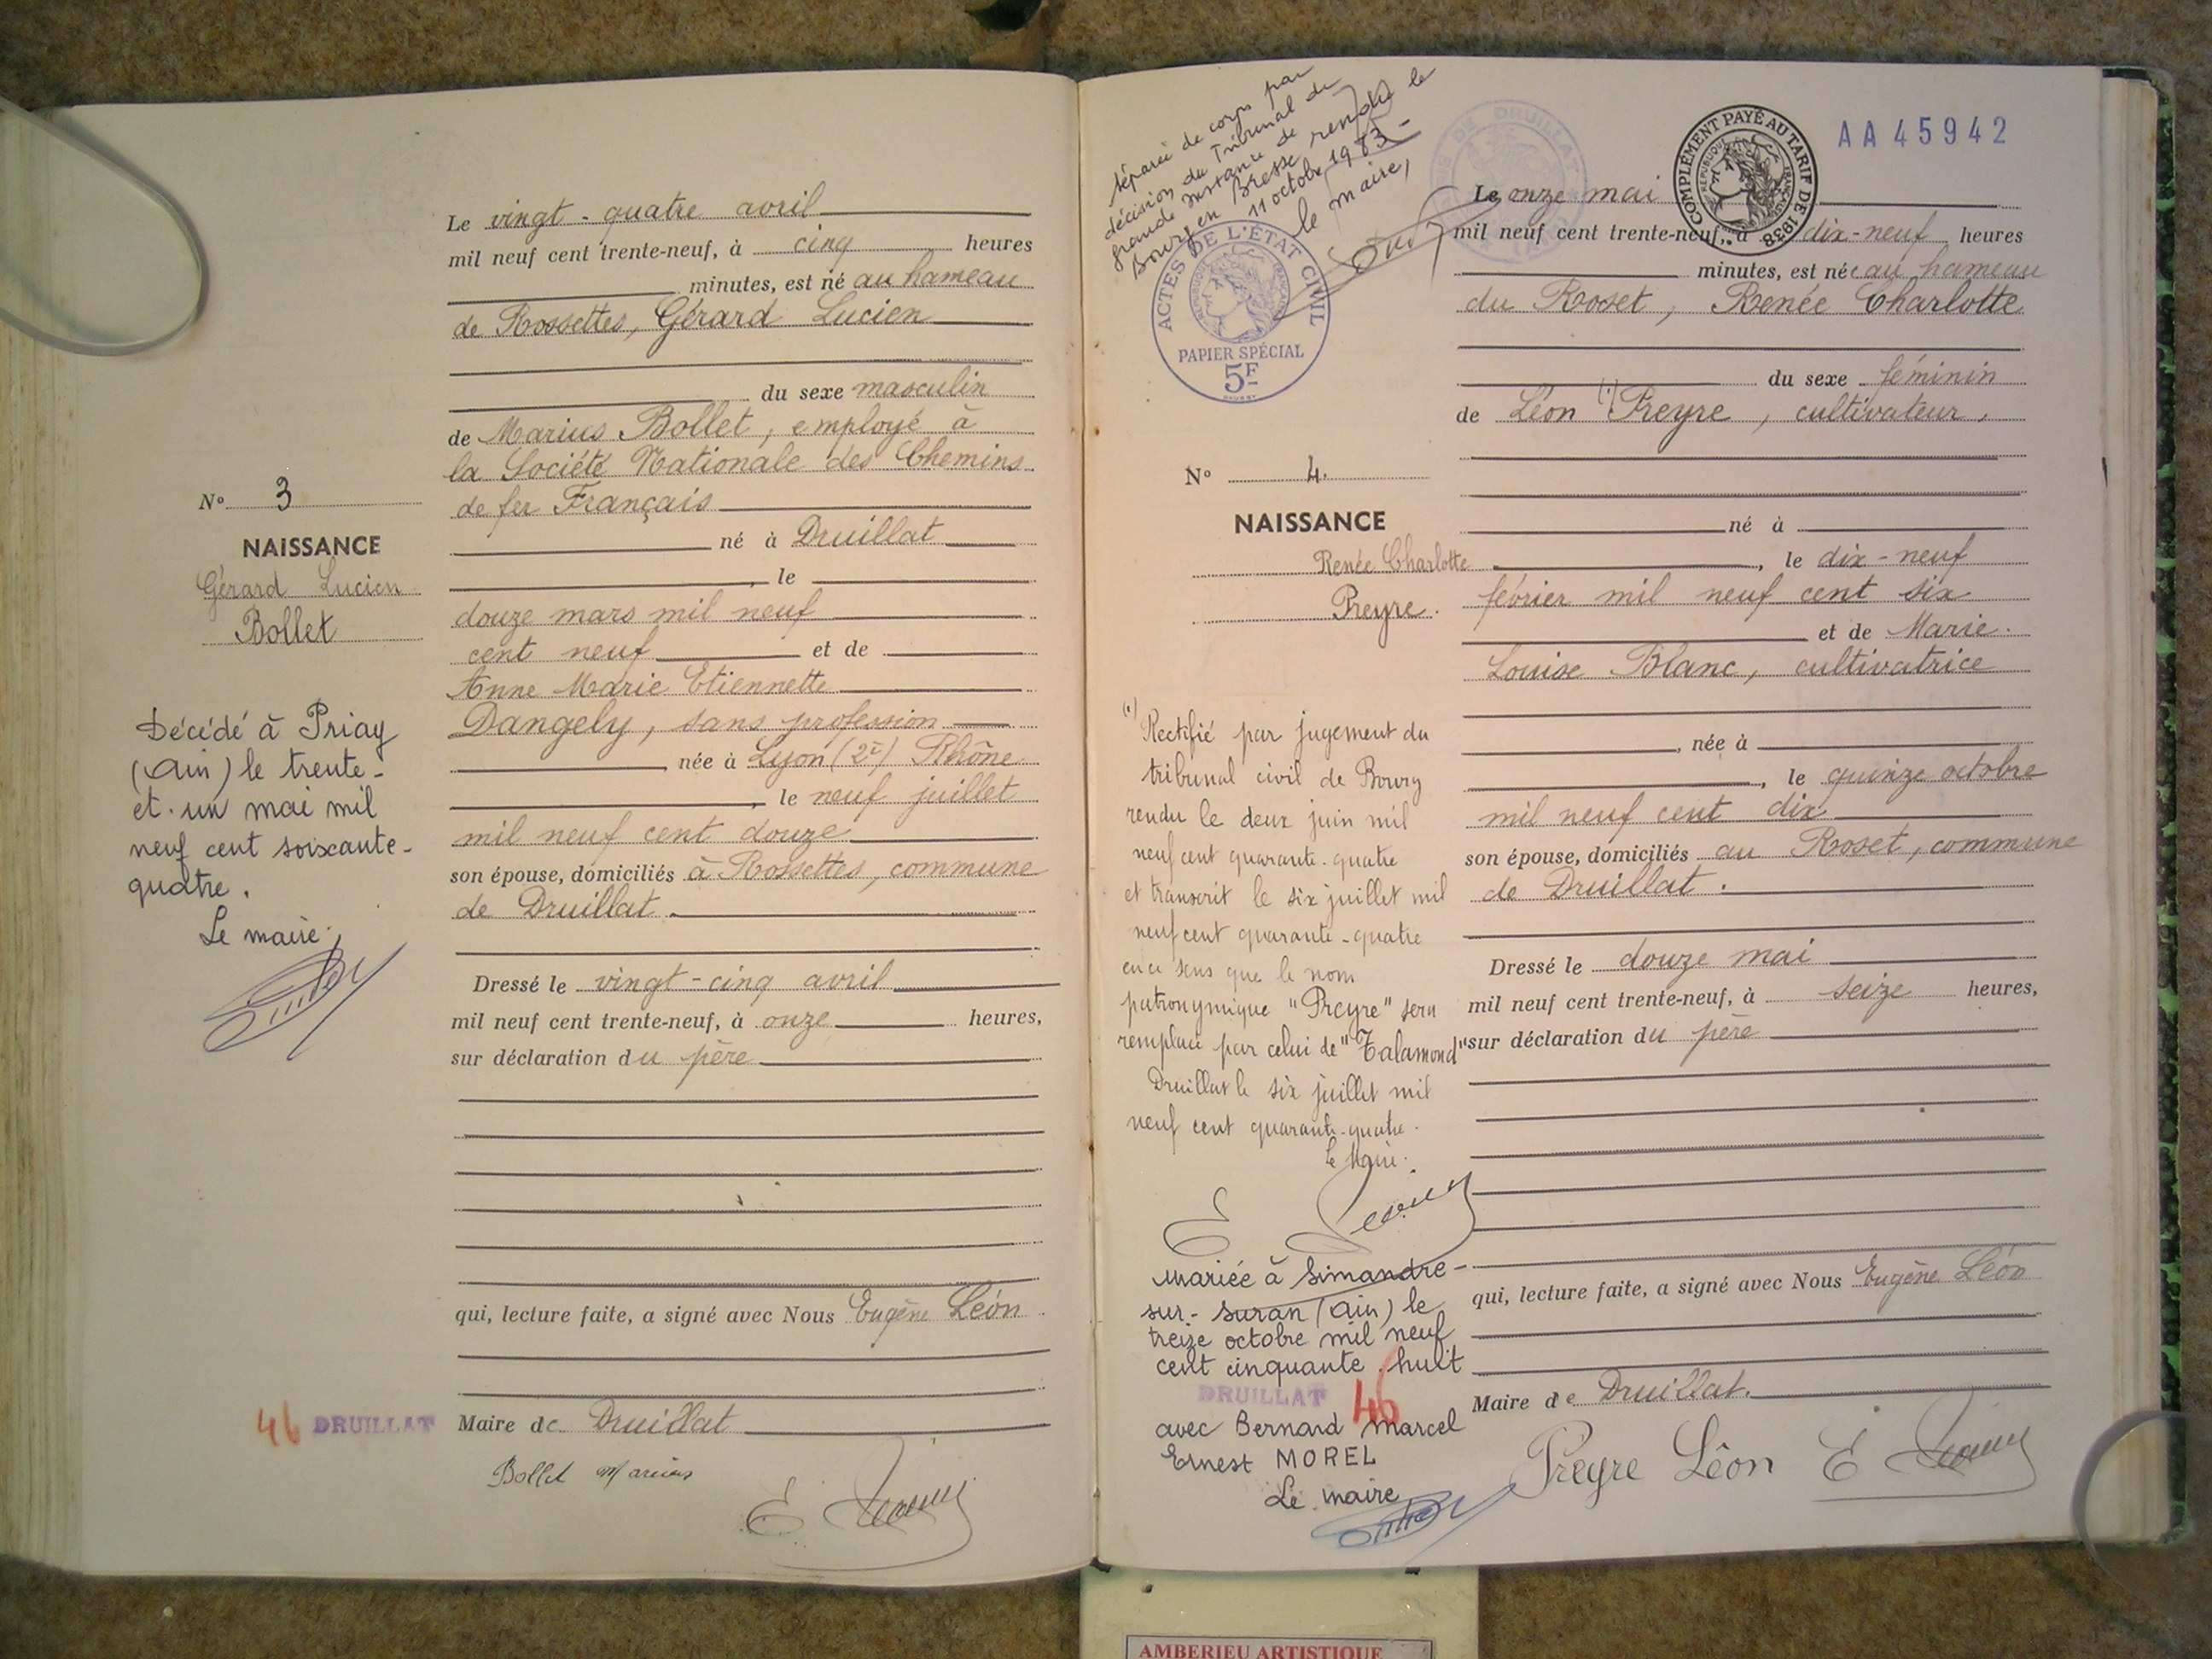 Le vingt-quatre avril
mil neuf cent trente-neuf, à cinq heures
minutes, est né au hameau
de Rossettes, Gérard Lucien
du sexe masculin
de Marius Bollet, employé à
la Société Nationale des Chemins
de fer Français
né à Druillat
, le
douze mars mil neuf
cent neuf et de
Anne Marie Etiennette
Dangely, sans profession
, née à Lyon (2e) Rhône
, le neuf juillet
mil neuf cent douze
son épouse, domiciliés à Rossettes, commune
de Druillat.
Dressé le vingt-cinq avril
mil neuf cent trente-neuf, à onze heures,
sur déclaration du père
qui, lecture faite, a signé avec Nous Eugène Léon
Maire de Druillat
Bollet Marius
N° 3
NAISSANCE
Gérard Lucien
Bollet
Décédé à Priay
(Ain) le trente-
et-un mai mil
neuf cent soixante-
quatre.
Le maire,
46 DRUILLAT
séparée de corps par
décision du Tribunal de
grande instance de
Bourg en Bresse rendue le
11 octobre 1983-
le maire,
ACTES DE L'ÉTAT CIVIL
PAPIER SPÉCIAL
5F
N° 4.
NAISSANCE
Renée Charlotte
Preyre.
(1) Rectifié par jugement du
tribunal civil de Bourg
rendu le deux juin mil
neuf cent quarante-quatre
et transcrit le six juillet mil
neuf cent quarante-quatre
en ce sens que le nom
patronymique "Preyre" sera
remplacé par celui de "Talamond"
Druillat le six juillet mil
neuf cent quarante-quatre.
Le Maire.
mariée à Simandre-
sur-Suran (Ain) le
treize octobre mil neuf
cent cinquante-huit
DRUILLAT 46
avec Bernard Marcel
Ernest MOREL
Le maire
COMPLÉMENT PAYÉ AU TARIF DE 1938
RÉPUBLIQUE FRANÇAISE
AA45942
Le onze mai
mil neuf cent trente-neuf, à dix-neuf heures
minutes, est née au hameau
du Roset, Renée Charlotte
du sexe féminin
de Léon (1) Preyre, cultivateur,
né à
, le dix-neuf
février mil neuf cent six
et de Marie
Louise Blanc, cultivatrice
, née à
, le quinze octobre
mil neuf cent dix
son épouse, domiciliés au Roset, commune
de Druillat.
Dressé le douze mai
mil neuf cent trente-neuf, à seize heures,
sur déclaration du père
qui, lecture faite, a signé avec Nous Eugène Léon
Maire de Druillat.
Preyre Léon
AMBERIEU ARTISTIQUE